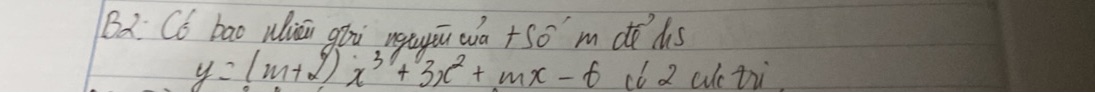 B2: Có bao nhiêu gtrị nguyên của t số m để hs
y = (m+2)x³ + 3x² + mx - 6 có 2 cực trị